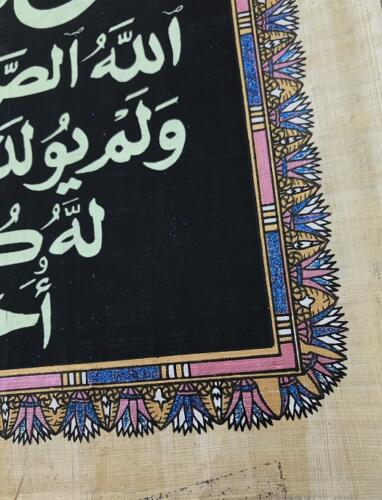 ٱللَّهُ ٱلصَّ
وَلَمْ يُولَد
لَّهُ كُ
أَحَ